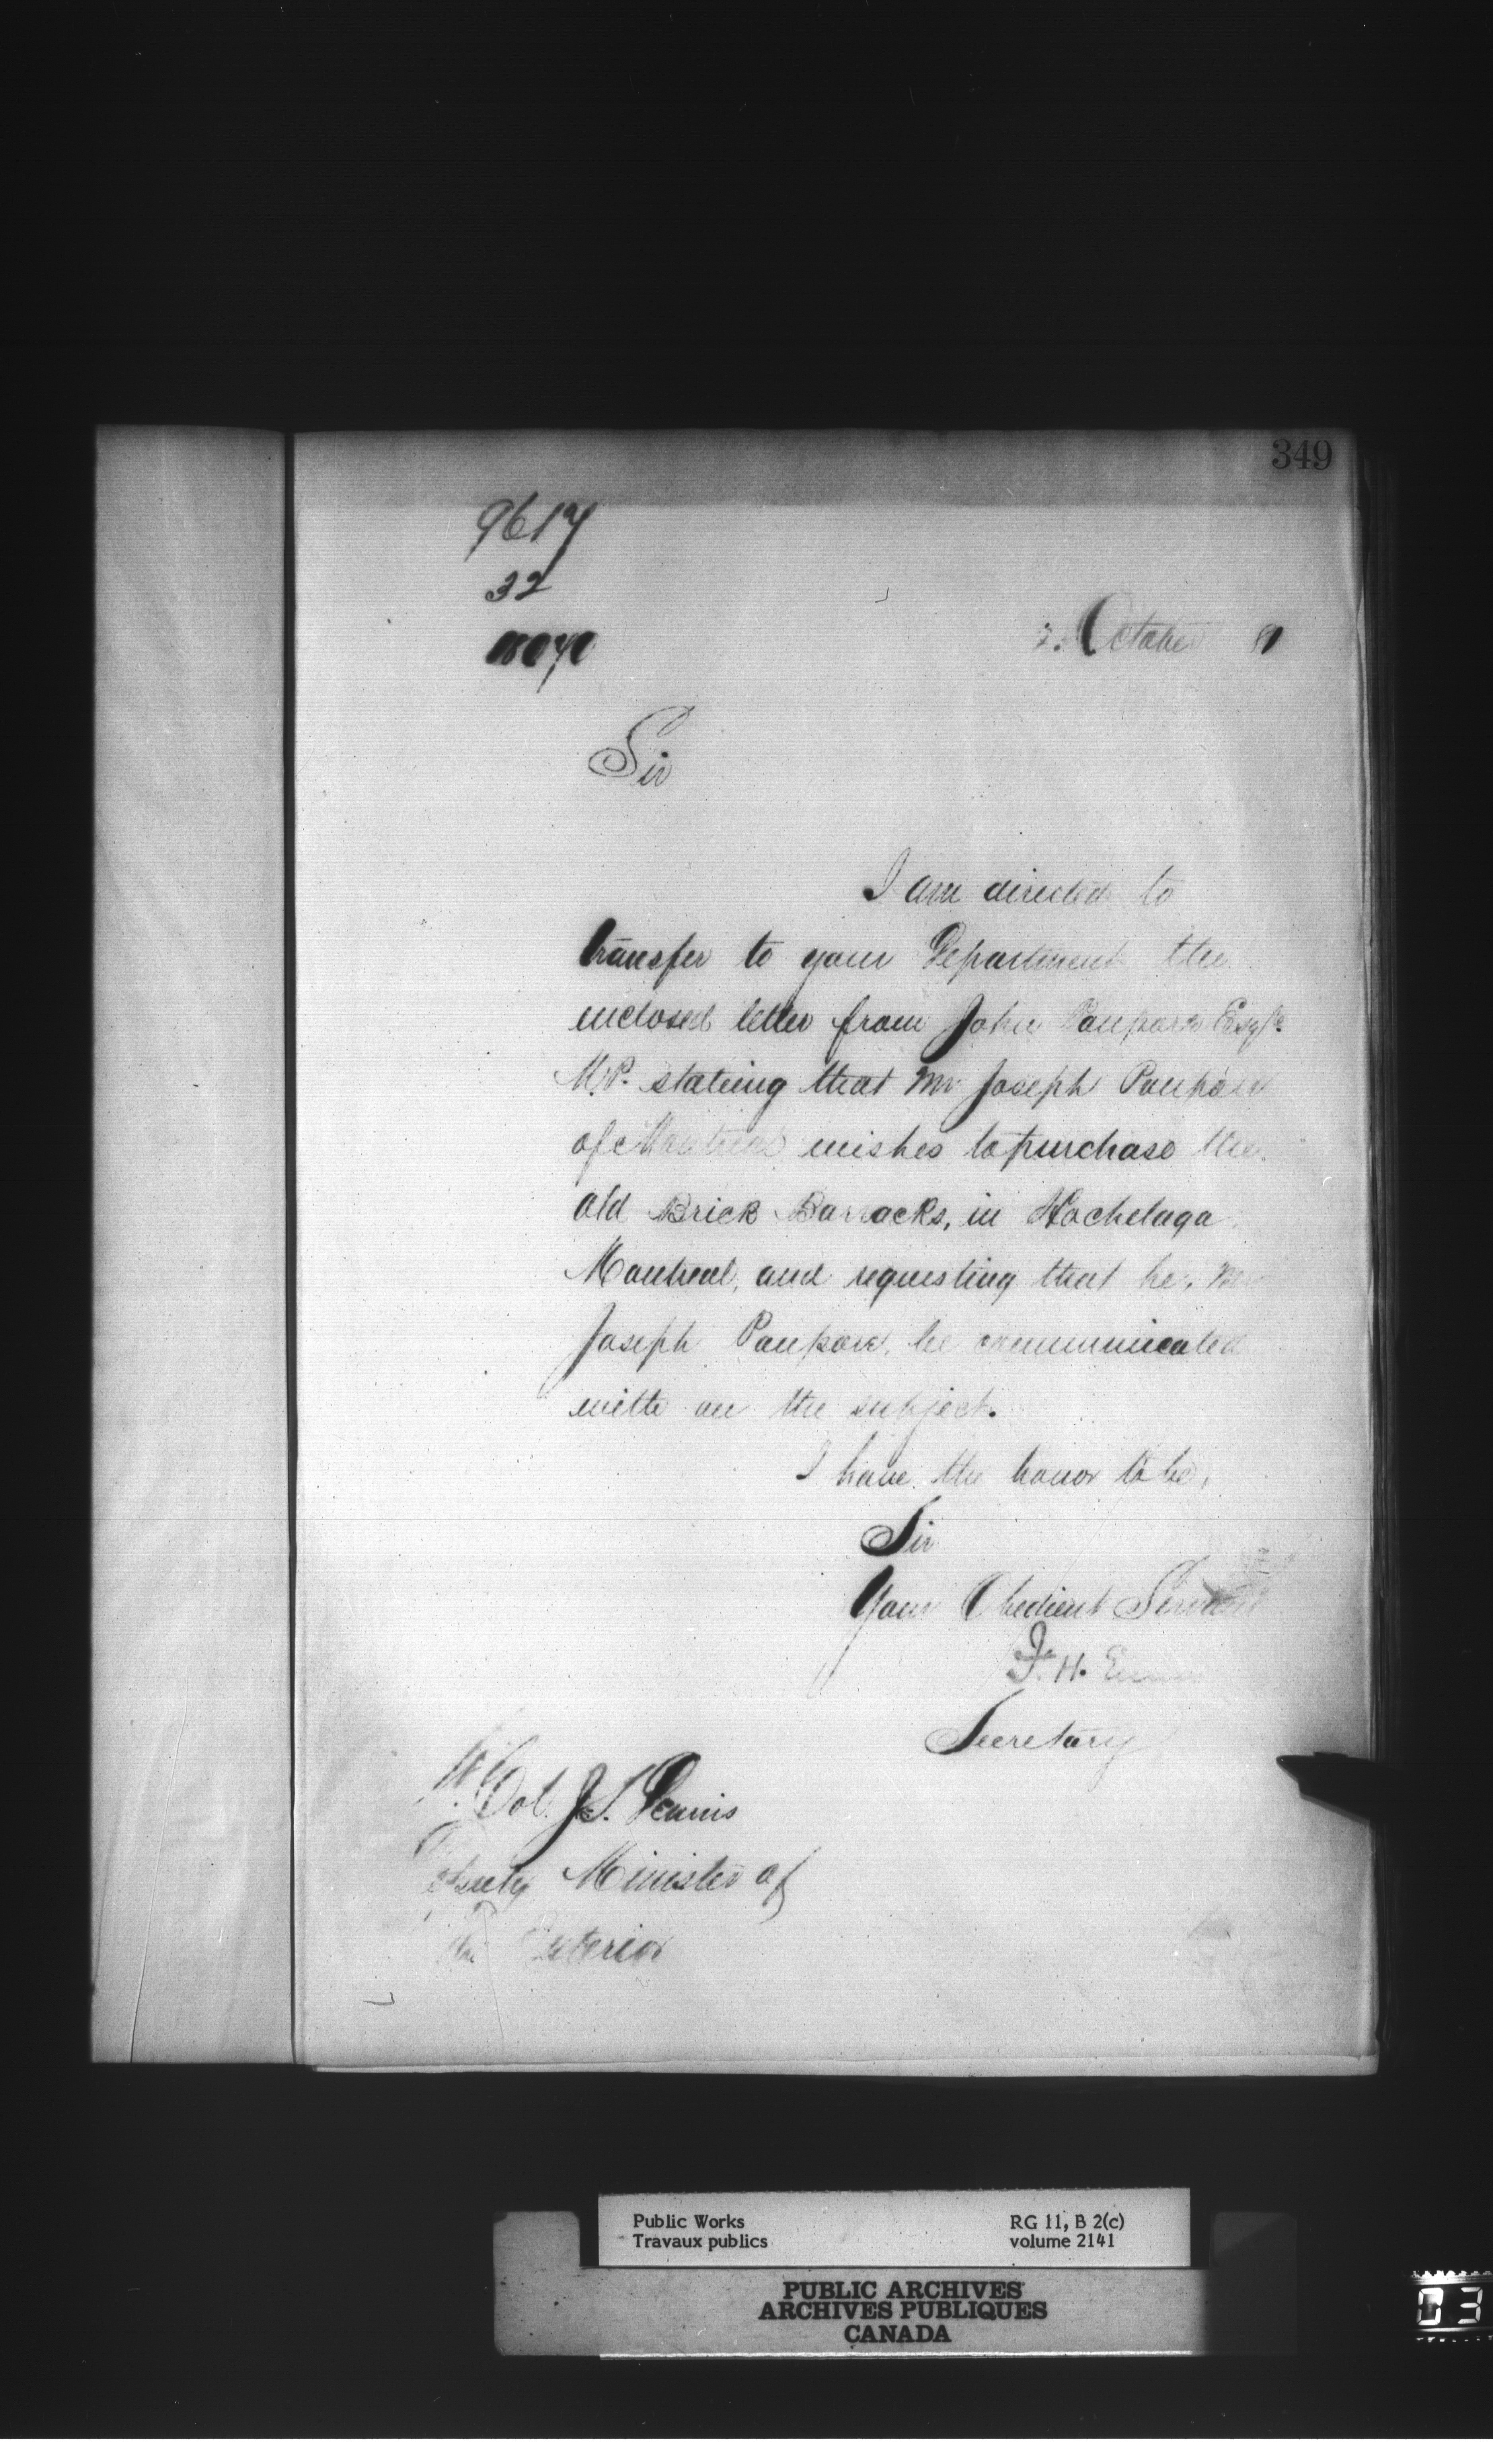 349
9617
32
October 81
Sir
I am directed to
transfer to your Department the
enclosed letter from John Poupore Esqre
M.P. stateing that Mr Joseph Poupore
of Montreal wishes to purchase the
old Brick Barracks, in Hochelaga
Montreal, and requesting that he, Mr
Joseph Poupore, be communicated
with on the subject.
I have the honor to be,
Sir
Your Obedient Servant
F. H. Ennis
Secretary
Lt Col. J. S. Dennis
Deputy Minister of
the Interior
Public Works
Travaux publics
RG 11, B 2(c)
volume 2141
PUBLIC ARCHIVES
ARCHIVES PUBLIQUES
CANADA
03